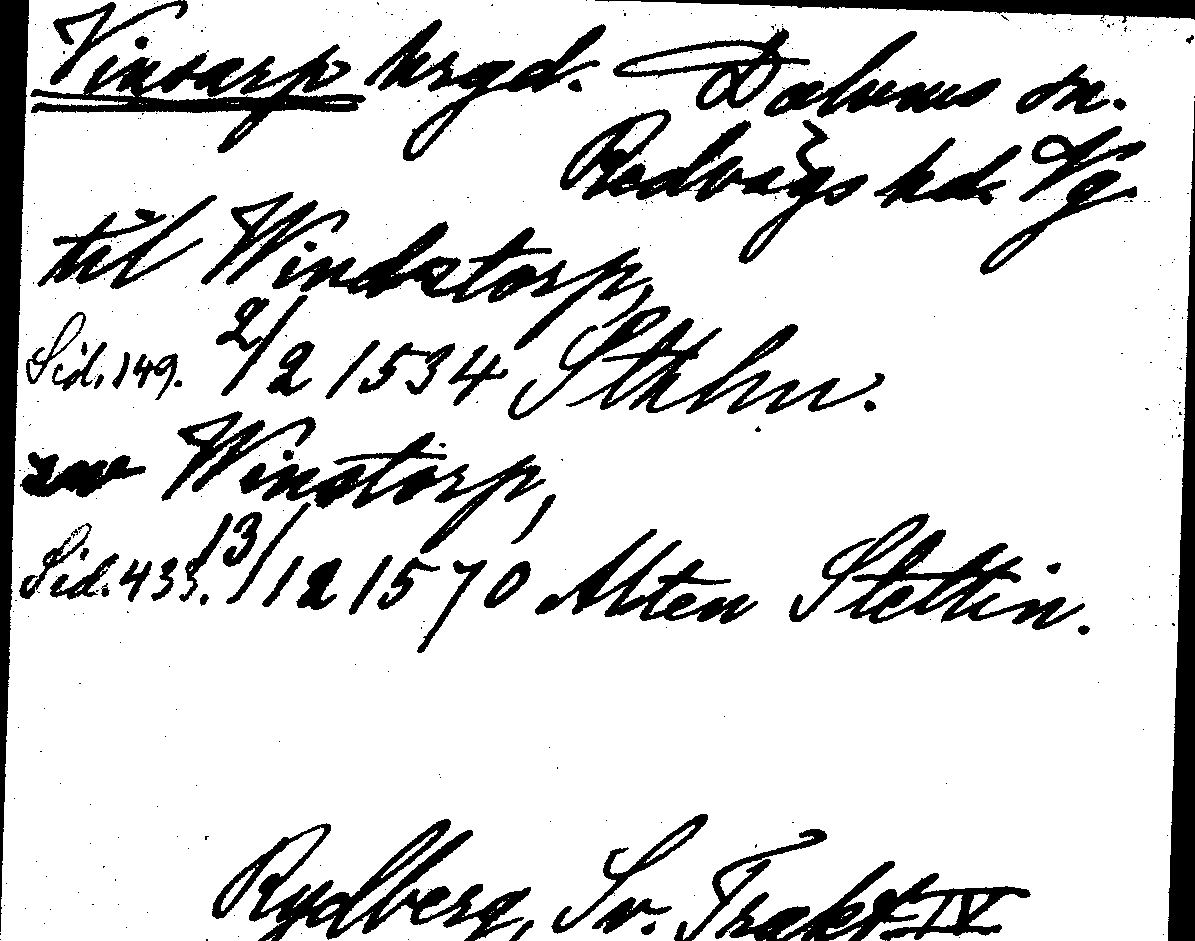 Vinsarp hrgd. Dalums sn.
Redvägs hd. Vg.
til Windstorp,
Sid. 149. 2/2 1534 Sthlm.
zw Winstorp,
Sid. 433. 13/12 1570 Alten Stettin.
Rydberg, Sv. Trakt. IV